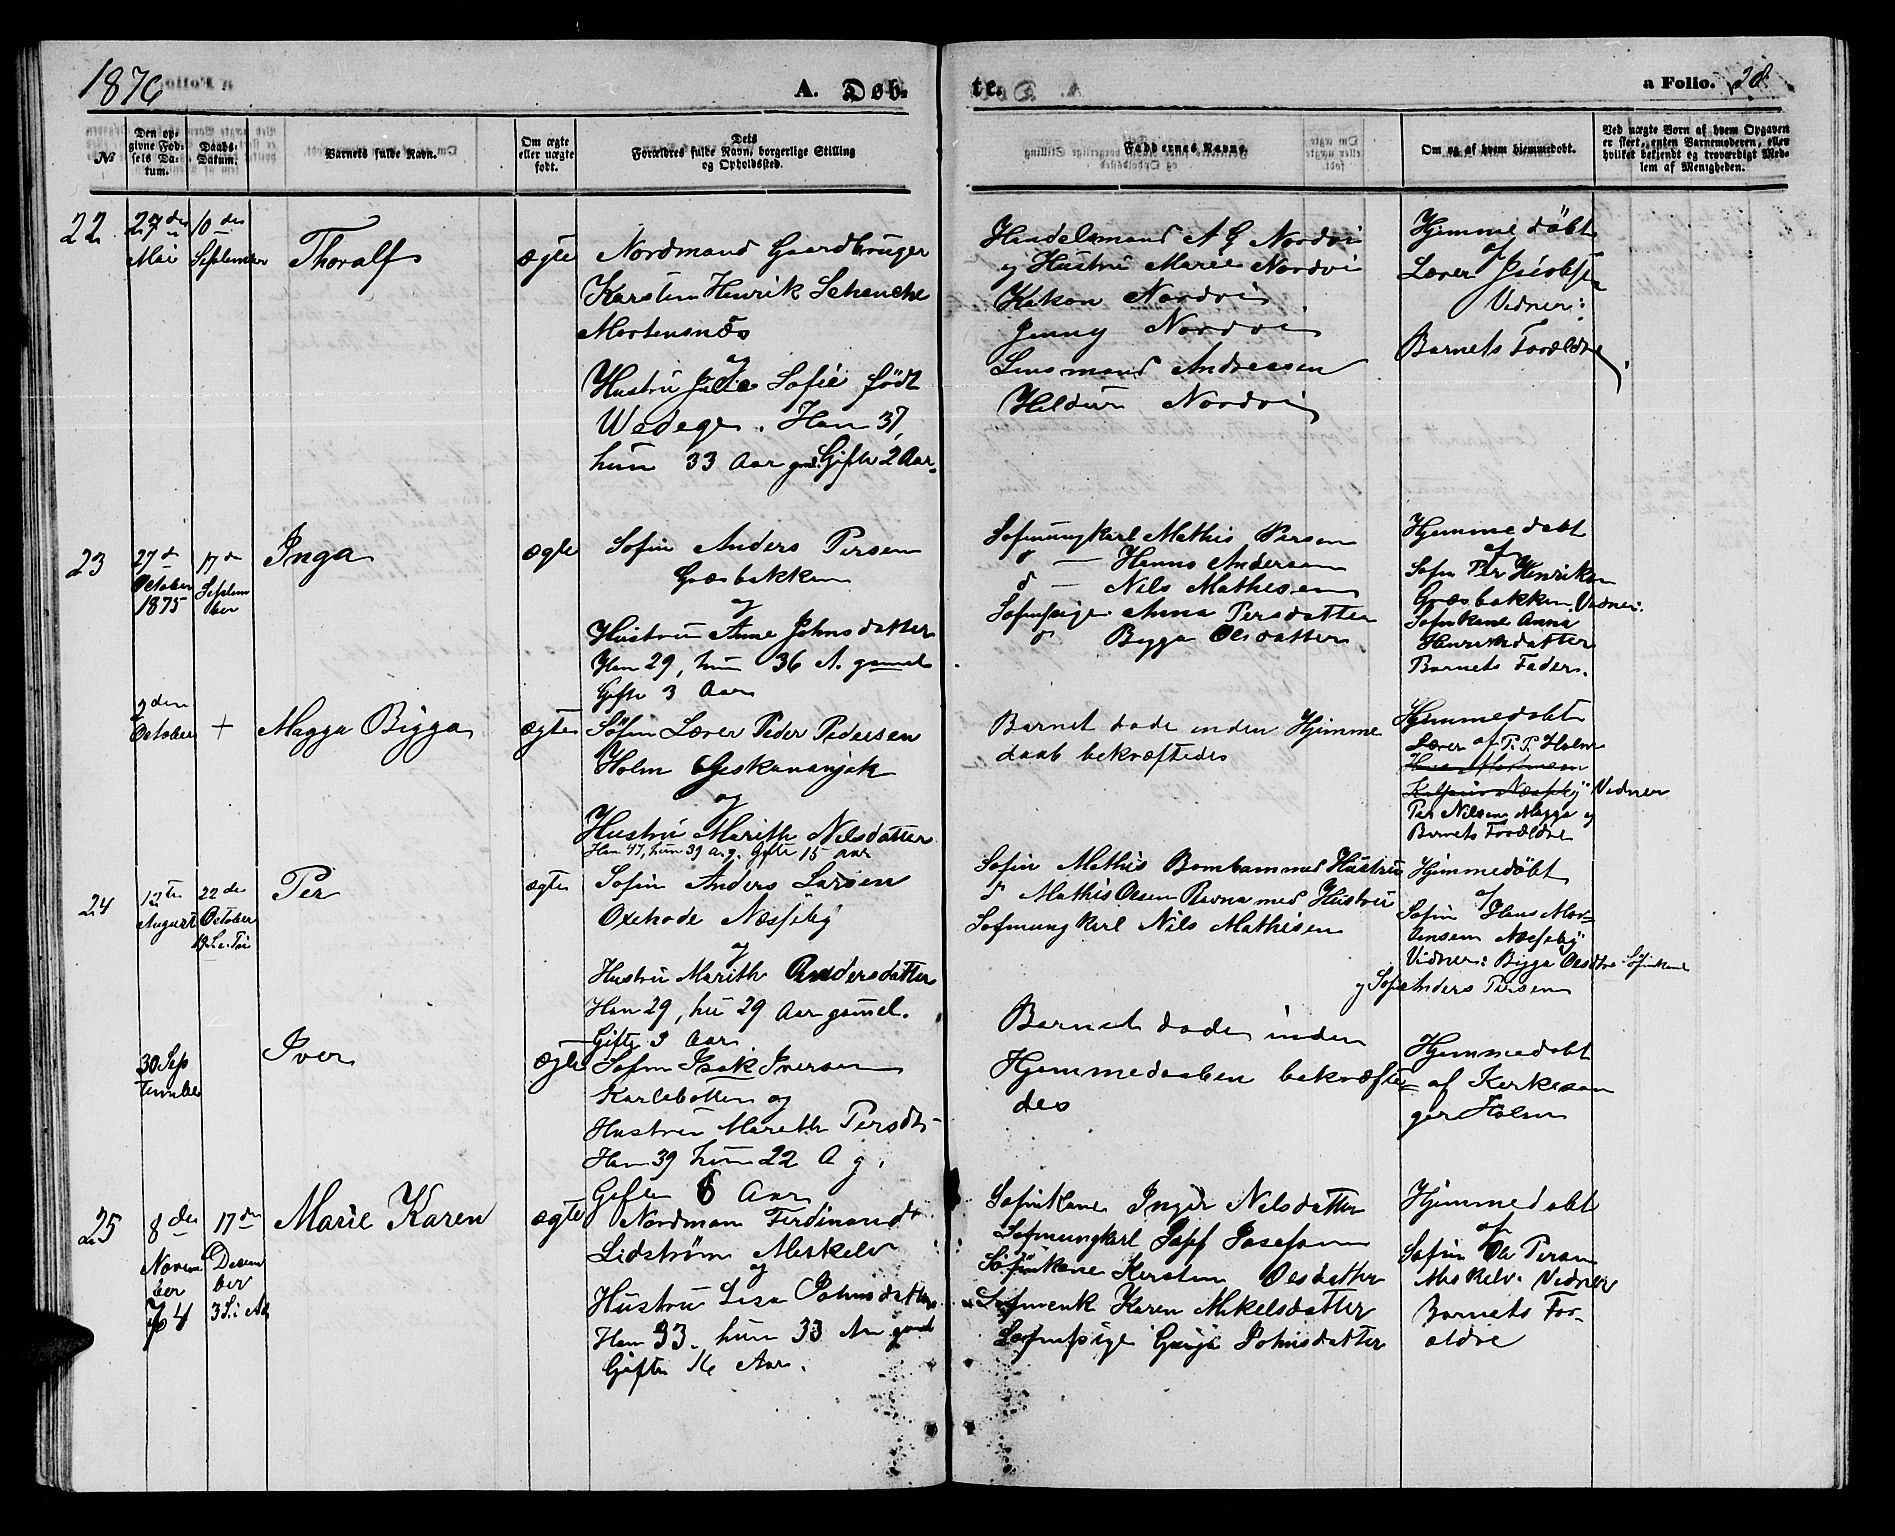 1876
A. Døb-
te.
a Folio. 28.
№
Den op-
givne Fød-
sels Da-
tum.
Daabs-
Datum.
Barnets fulde Navn.
Om ægte
eller uægte
født.
Dets
Forældres fulde Navn, borgerlige Stilling
og Opholdssted.
Faddernes Navne.
Om og af hvem hjemmedøbt.
Ved uægte Børn af hvem Opgaven
er skeet, enten Barnemoderen, eller
hvilket bekjendt og troværdigt Med-
lem af Menigheden.
22
27de
Mai
10de
September
Thoralf
ægte
Nordmand Gaardbruger
Karsten Henrik Schanche
Mortensnæs
og
Hustru Julie Sofie født
Wedege. Han 37,
hun 33 Aar gml. Gifte 2 Aar.
Handelsmand A G Nordvi
og Hustru Marie Nordvi
Hakon Nordvi
Jenny Nordvi
Lensmand Andreasen
Hildur Nordvi
Hjemmedöbt
af
Lærer Jacobsen
Vidner:
Barnets Forældre
23
27d
October
1875
17de
Septem
ber
Inga
ægte
Søfin Anders Persen
Græsbakken
og
Hustru Ane Johnsdatter
Han 29, hun 36 A. gamel
Gifte 3 Aar
Søfinungkarl Mathis Persen
d — Hanns Andersen
d — Nils Mathesen
Søfinpige Anna Persdatter
d Bygga Olsdatter
Hjemmedøbt
af
Søfin Per Henriksen
Græsbakken, Vidner:
Søfinkone Anna
Henriksdatter
Barnets Fader.
2den
October
+
Magga Bigga
ægte
Søfin Lærer Peder Pedersen
Holm Geskananjok
og
Hustru Marith Nilsdatter
Han 47, hun 39 a. g. Gifte 15 aar
Barnet døde inden Hjemme
daab bekræftedes
Hjemmedøbt
af
Lærer P. P. Holm
Vidner
Per Nilsen Magga og
Barnets Forældre
24
12te
August
22de
October
19 S. e. Tri
Per
ægte
Søfin Anders Larsen
Oxehode Næsseby
og
Hustru Marith Andersdatter
Han 29, hu 29 Aar gamel.
Gifte 3 Aar
Søfin Mathis Bomban med Hustru
d Mathis Olsen Ravna med Hustru
Søfinungkarl Nils Mathisen
Hjemmedøbt
af
Søfin Hans Mor-
tensen Næsseby
Vidner: Bigga Olsdtr Søfinkone
og Søfin Anders Persen
30 Sep
tember
Iver
ægte
Søfin Isak Iversen
Karlebotten og
Hustru Marith Persdtr
Han 39 hun 22 A g.
Gifte 6 Aar
Barnet døde inden
Hjemmedaaben bekræfte=
des
Hjemmedøbt
af Kirkesan
ger Holm
25
8de
Novem
ber
p 4
17de
Decem
ber
3 S. i Ad
Marie Karen
ægte
Nordman Ferdinand
Lidstrøm Meskelv
og
Hustru Lisa Johnsdatter
Han 33. hun 33 Aar gamel
Gifte 16 Aar.
Søfinkone Inger Nilsdatter
Søfinungkarl Josef Josefsen
Søfinkone Kersten Olsdatter
Søfinenk Karen Mikelsdatter
Søfinpige Gunja Johnsdatter
Hjemmedøbt
af
Søfin Ole Persen
Meskelv. Vidner
Barnets For-
ældre